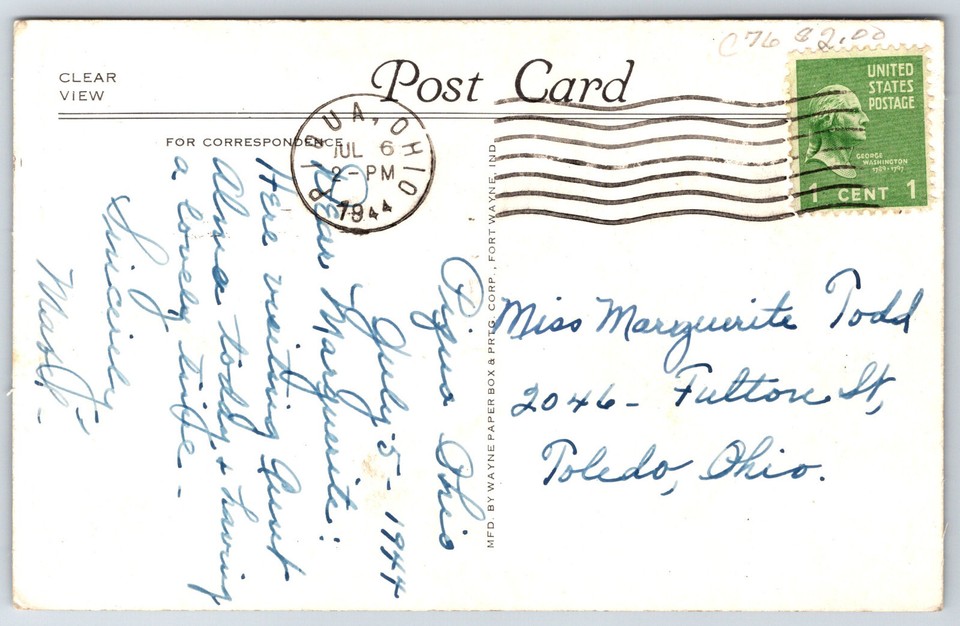 C76 $2.00
CLEAR
VIEW
Post Card
FOR CORRESPONDENCE
PIQUA, OHIO
JUL 6
2-PM
1944
UNITED
STATES
POSTAGE
GEORGE
WASHINGTON
1789-1797
1 CENT 1
Piqua Ohio
July 5 - 1944
Dear Marguerite:
Here visiting Aunt
Alma Todd, + having
a lovely time. -
Sincerely
MFD. BY WAYNE PAPER BOX & PRTG. CORP., FORT WAYNE, IND.
Miss Marguerite Todd
2046 - Fulton St,
Toledo, Ohio.